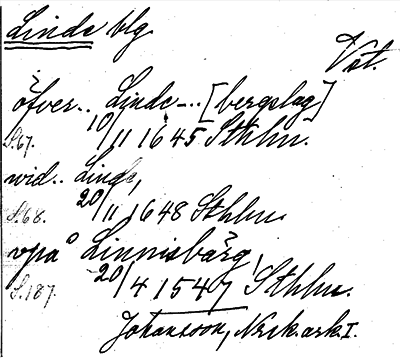 Linde blg.
Vst.
öfver.. Linde-.. [bergslag]
S.67. 10/11 1645 Sthlm.
wid.. Linde,
S.68. 20/11 1648 Sthlm.
vpå Linnisbärg,
S.187. 20/4 1547 Sthlm.
Johansson, Nrk.ark.I.